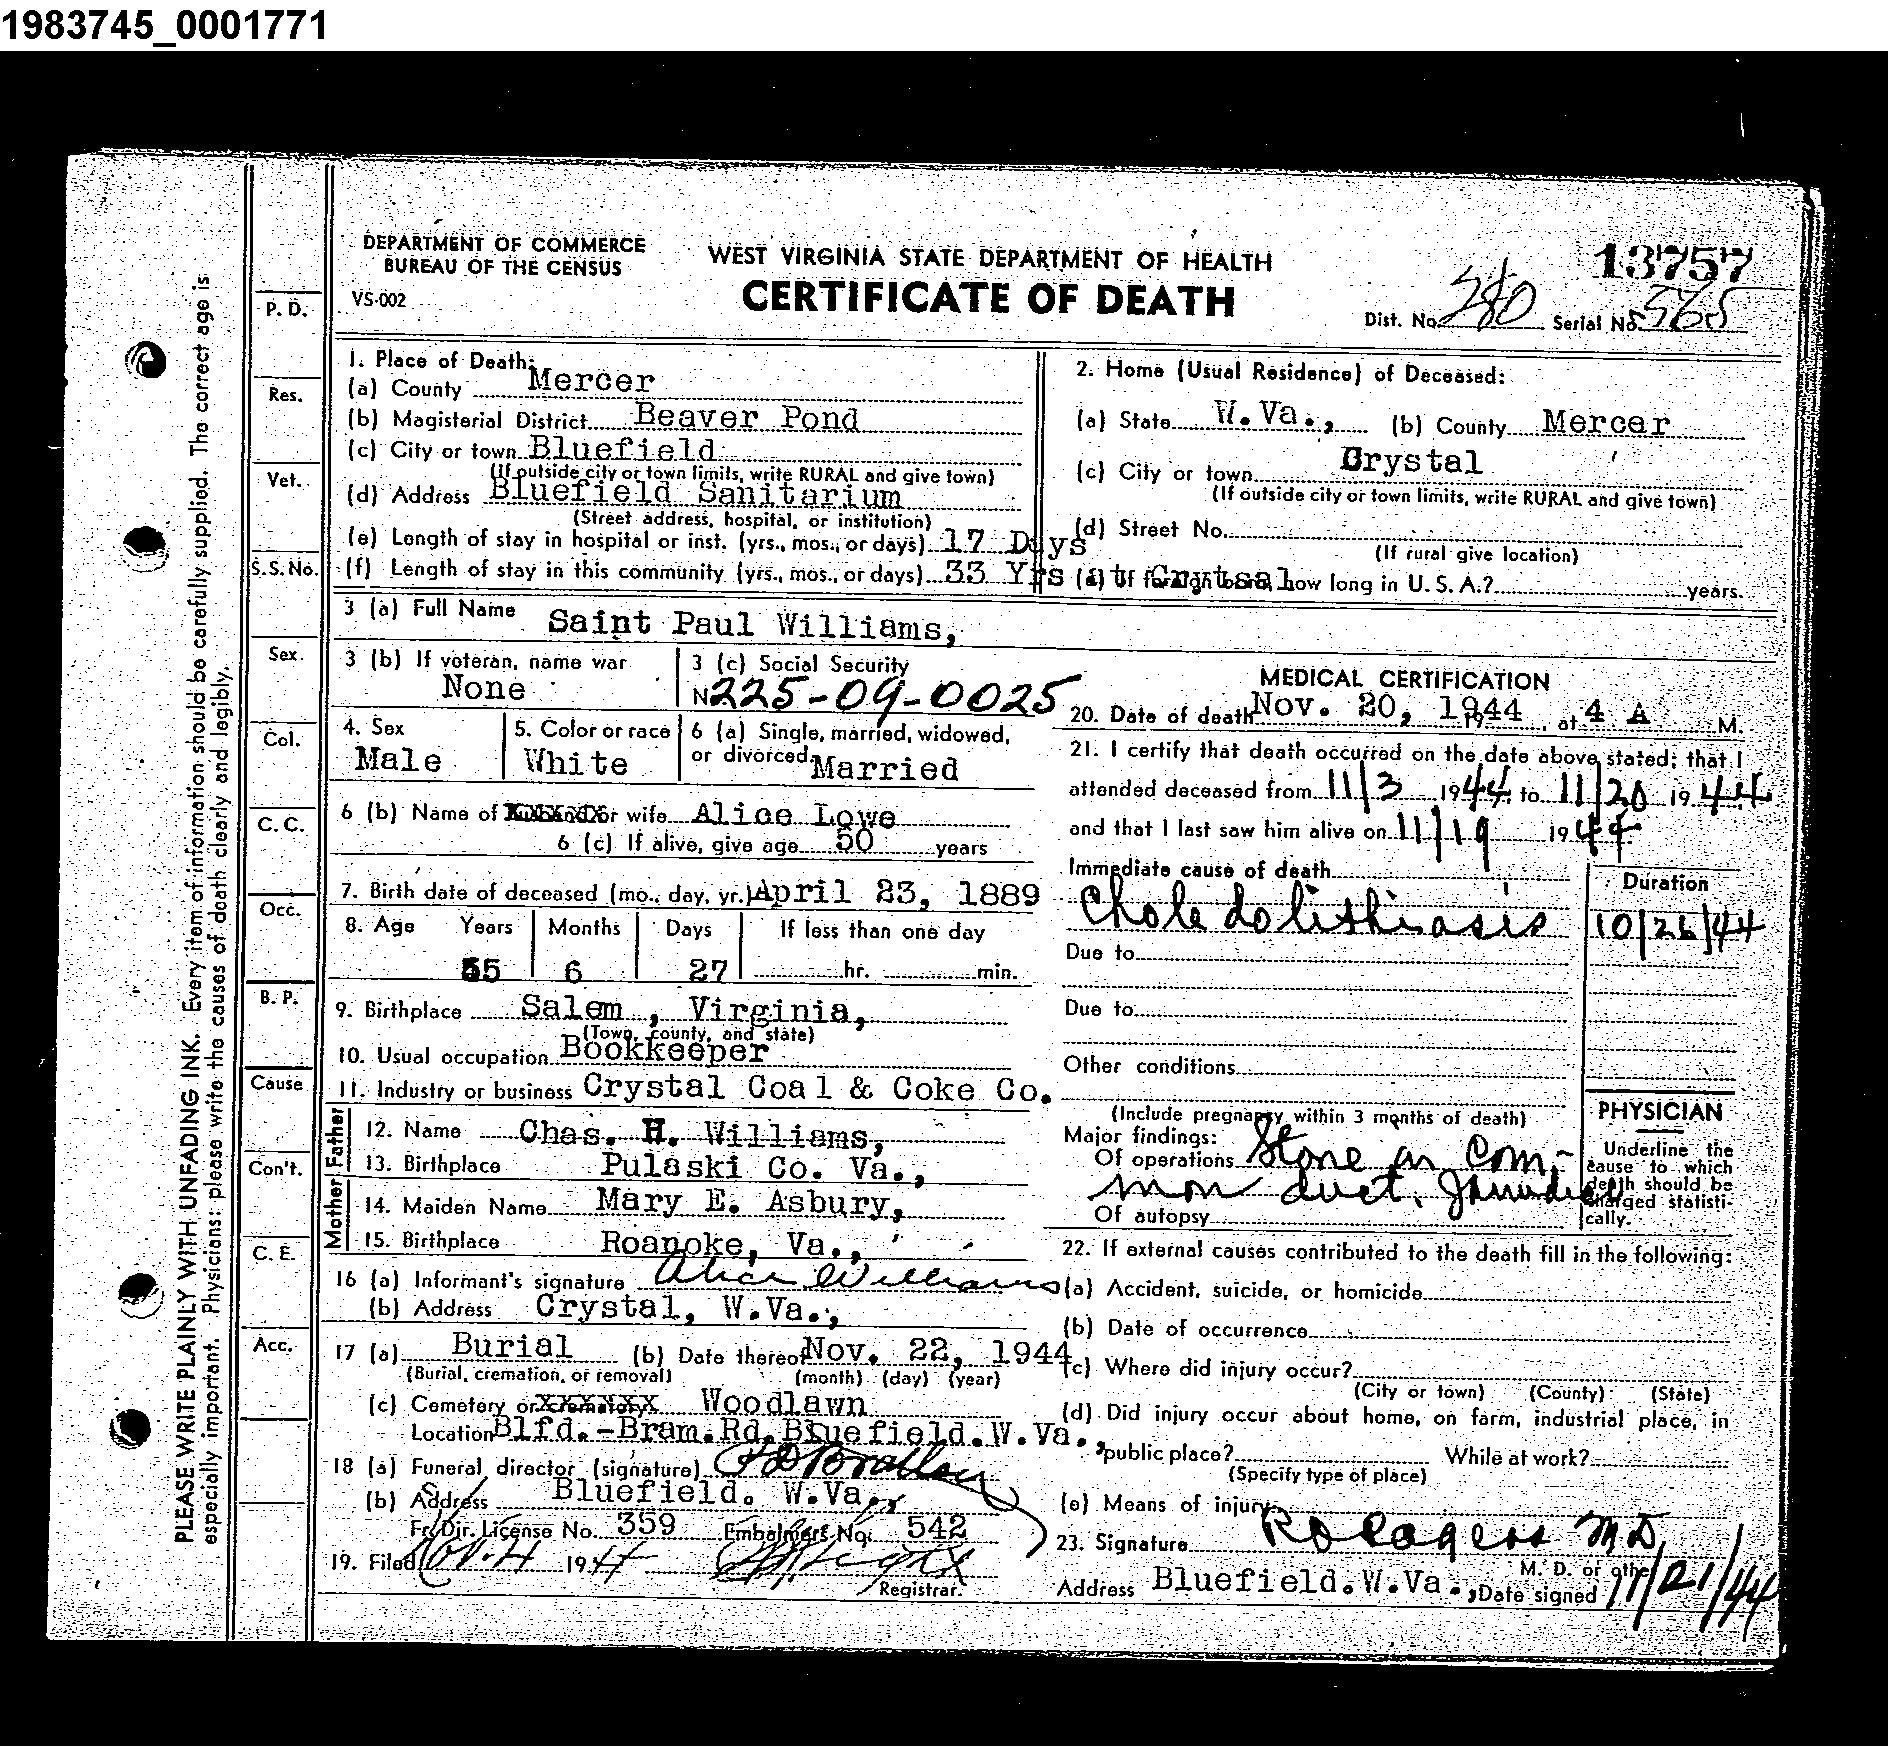 1983745_0001771
DEPARTMENT OF COMMERCE
BUREAU OF THE CENSUS
VS-002
WEST VIRGINIA STATE DEPARTMENT OF HEALTH
CERTIFICATE OF DEATH
13757
Dist. No. 280 Serial No. 565
PLEASE WRITE PLAINLY WITH UNFADING INK. Every item of information should be carefully supplied. The correct age is
especially important. Physicians: please write the causes of death clearly and legibly.
P. D.
Res.
Vet.
S.S. No.
Sex.
Col.
C. C.
Occ.
B. P.
Cause
Con't.
C. E.
Acc.
1. Place of Death:
(a) County Mercer
(b) Magisterial District Beaver Pond
(c) City or town Bluefield
(If outside city or town limits, write RURAL and give town)
(d) Address Bluefield Sanitarium
(Street address, hospital, or institution)
(e) Length of stay in hospital or inst. (yrs., mos., or days) 17 Days
(f) Length of stay in this community (yrs., mos., or days) 33 Yrs at Crytsal
2. Home (Usual Residence) of Deceased:
(a) State W.Va., (b) County Mercer
(c) City or town Crystal
(If outside city or town limits, write RURAL and give town)
(d) Street No.
(If rural give location)
(e) If foreign born, how long in U. S. A.? years.
3 (a) Full Name Saint Paul Williams,
3 (b) If veteran, name war
None
3 (c) Social Security
N 225-09-0025
4. Sex
Male
5. Color or race
White
6 (a) Single, married, widowed,
or divorced Married
6 (b) Name of xxxxxxx or wife Alice Lowe
6 (c) If alive, give age 50 years
7. Birth date of deceased (mo., day, yr.) April 23, 1889
8. Age Years Months Days If less than one day
55 6 27 hr. min.
9. Birthplace Salem , Virginia,
(Town, county, and state)
10. Usual occupation Bookkeeper
11. Industry or business Crystal Coal & Coke Co.
Father
12. Name Chas. H. Williams,
13. Birthplace Pulaski Co. Va.,
Mother
14. Maiden Name Mary E. Asbury,
15. Birthplace Roanoke, Va.,
16 (a) Informant's signature Alice Williams
(b) Address Crystal, W.Va.,
17 (a) Burial (b) Date thereof Nov. 22, 1944
(Burial, cremation, or removal) (month) (day) (year)
(c) Cemetery or xxxxxxx Woodlawn
Location Blfd.-Bram.Rd.Bluefield.W.Va.,
18 (a) Funeral director (signature)
(b) Address Bluefield. W.Va.,
Fr. Dir. License No. 359 Embalmers No. 542
19. Filed 1944
Registrar.
MEDICAL CERTIFICATION
20. Date of death Nov. 20, 1944 19 at 4 A M.
21. I certify that death occurred on the date above stated; that I
attended deceased from 11/3 1944 to 11/20 1944
and that I last saw him alive on 11/19 1944
Immediate cause of death
Duration
Choledolithiasis 10/26/44
Due to
Due to
Other conditions
(Include pregnancy within 3 months of death)
Major findings:
Of operations Stone in Com-
mon duct. Jaundice
Of autopsy
PHYSICIAN
Underline the
cause to which
death should be
charged statisti-
cally.
22. If external causes contributed to the death fill in the following:
(a) Accident, suicide, or homicide
(b) Date of occurrence
(c) Where did injury occur?
(City or town) (County) (State)
(d) Did injury occur about home, on farm, industrial place, in
public place? While at work?
(Specify type of place)
(e) Means of injury
23. Signature M D
M. D. or other
Address Bluefield.W.Va., Date signed 11/21/44